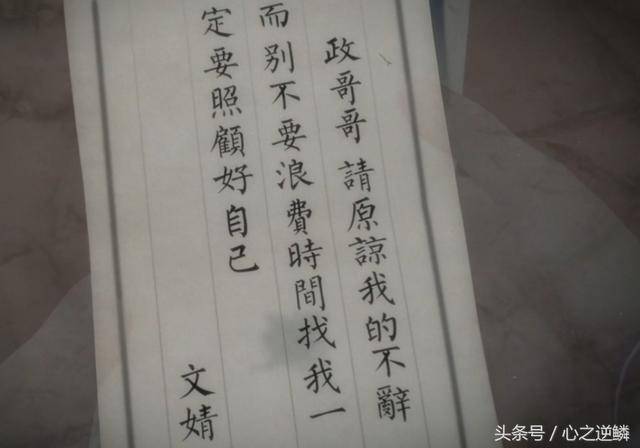 政哥哥 請原諒我的不辭
而别不要浪費時間找我一
定要照顧好自己
文婧
头条号／心之逆鳞